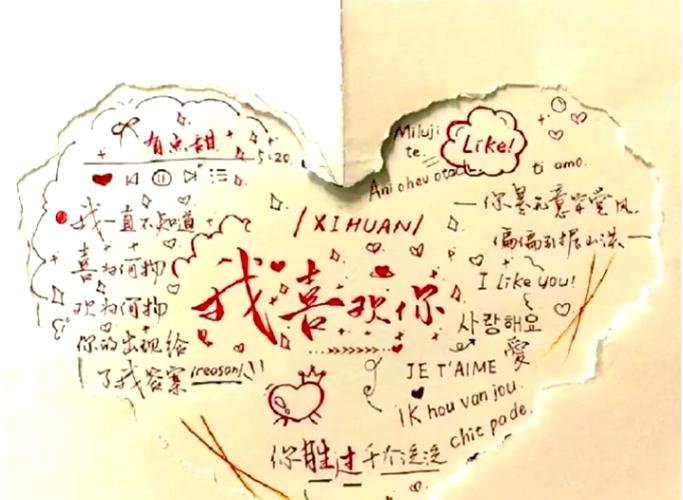 有点甜
5:20
我一直不知道
喜为何物
欢为何物
你的出现给
了我答案 (reason)
/XIHUAN/
我喜欢你
Miluji
te
Like!
Ani ohev otach
ti amo.
你是无意穿堂风
偏偏引
I like you!
사랑해요
愛
JE T'AIME
IK hou van jou.
chit pa de.
你胜过千个泛泛